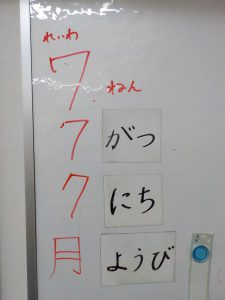 れいわ
7 ねん
7 がつ
7 にち
月 ようび